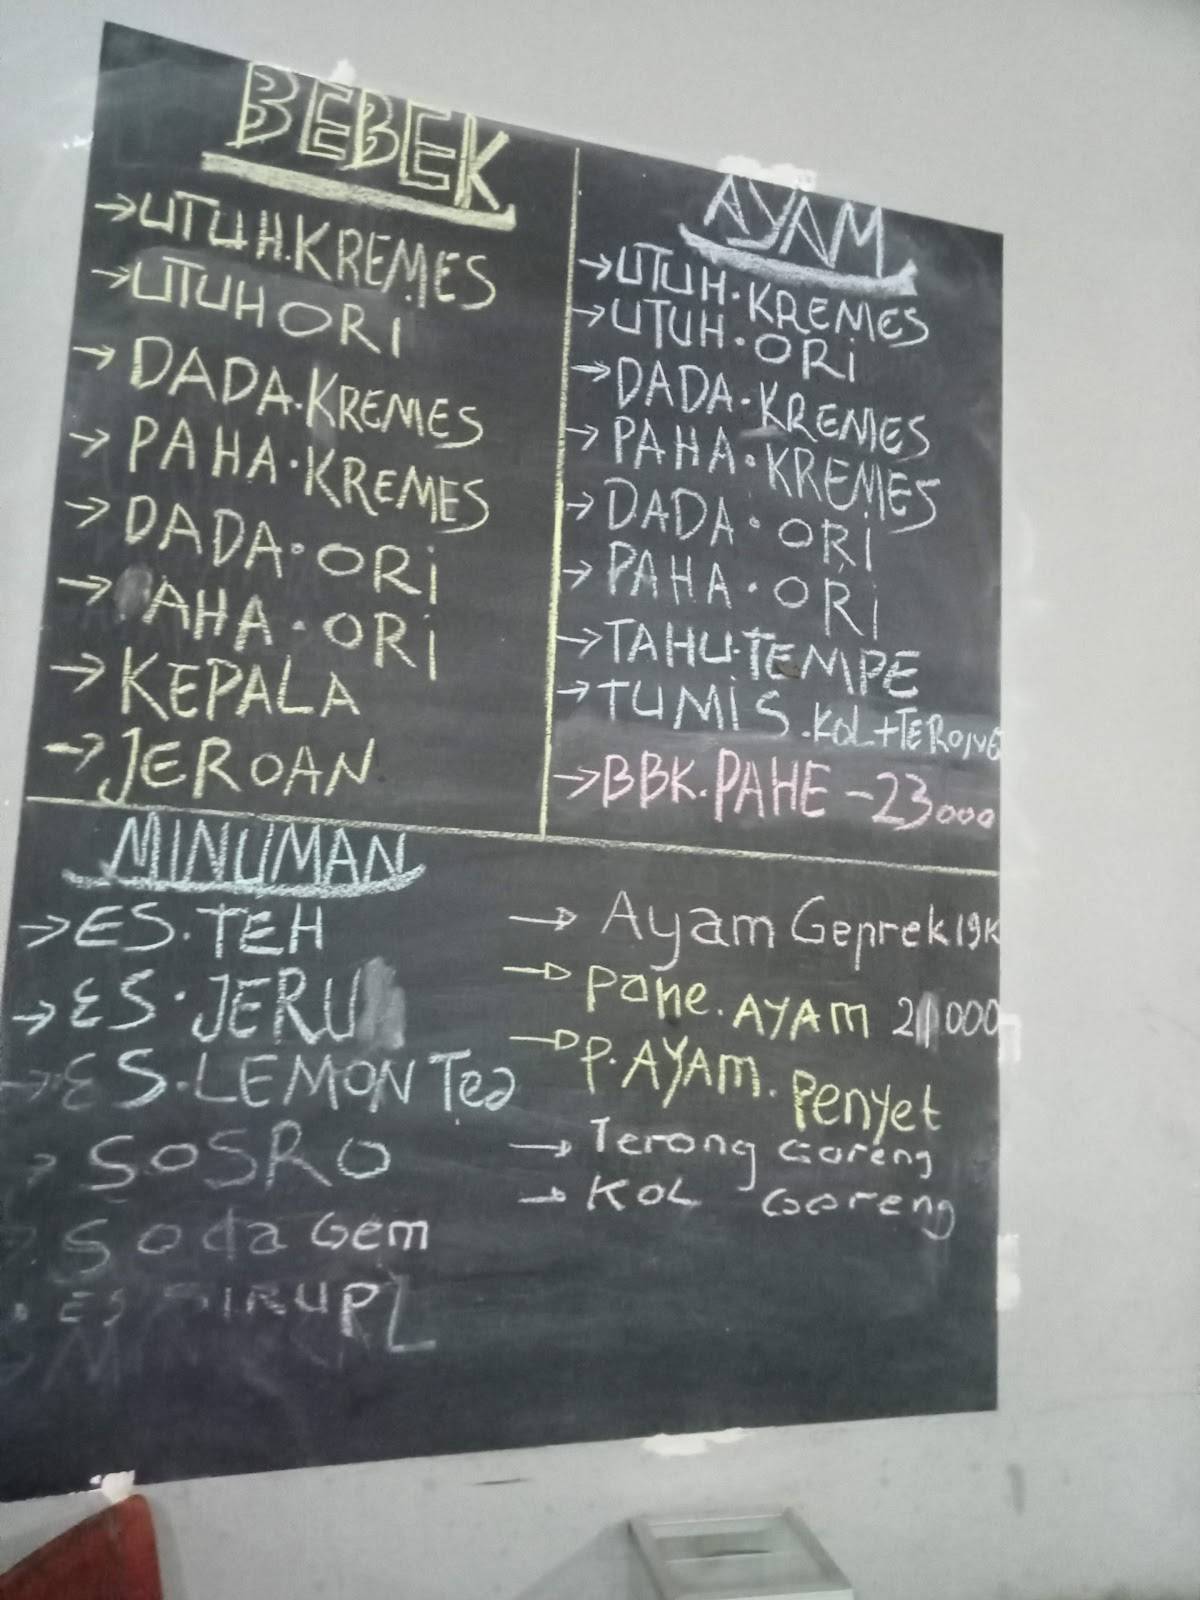 BEBEK
→UTUH.KREMES
→UTUH ORI
→DADA.KREMES
→PAHA.KREMES
→DADA.ORI
→AHA.ORI
→KEPALA
→JEROAN
AYAM
→UTUH.KREMES
→UTUH.ORI
→DADA.KREMES
→PAHA.KREMES
→DADA.ORI
→PAHA.ORI
→TAHU.TEMPE
→TUMIS.KOL+TERONG
→BBK.PAHE -23000
MINUMAN
→ES.TEH
→ES.JERU
→ES.LEMON Tea
→SOSRO
Soda Gem
ES SIRUP
→Ayam Geprek 19K
→Pahe.AYAM 21000
→P.AYAM.Penyet
→Terong Goreng
→KOL Goreng